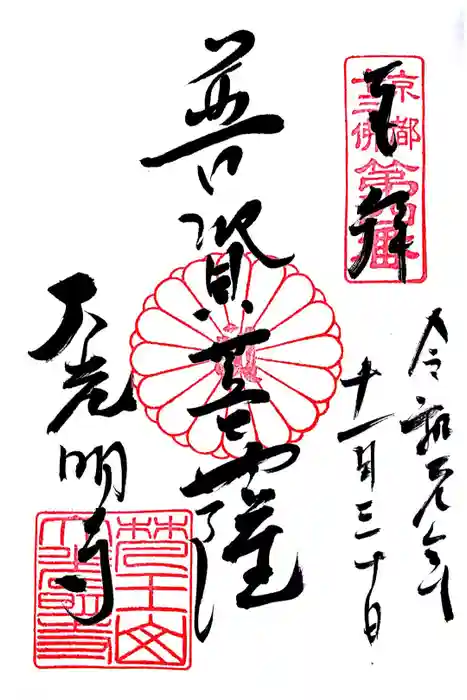 奉拝
京都
十三佛
第四番
令和元年
十一月三十日
普賢菩薩
大光明寺